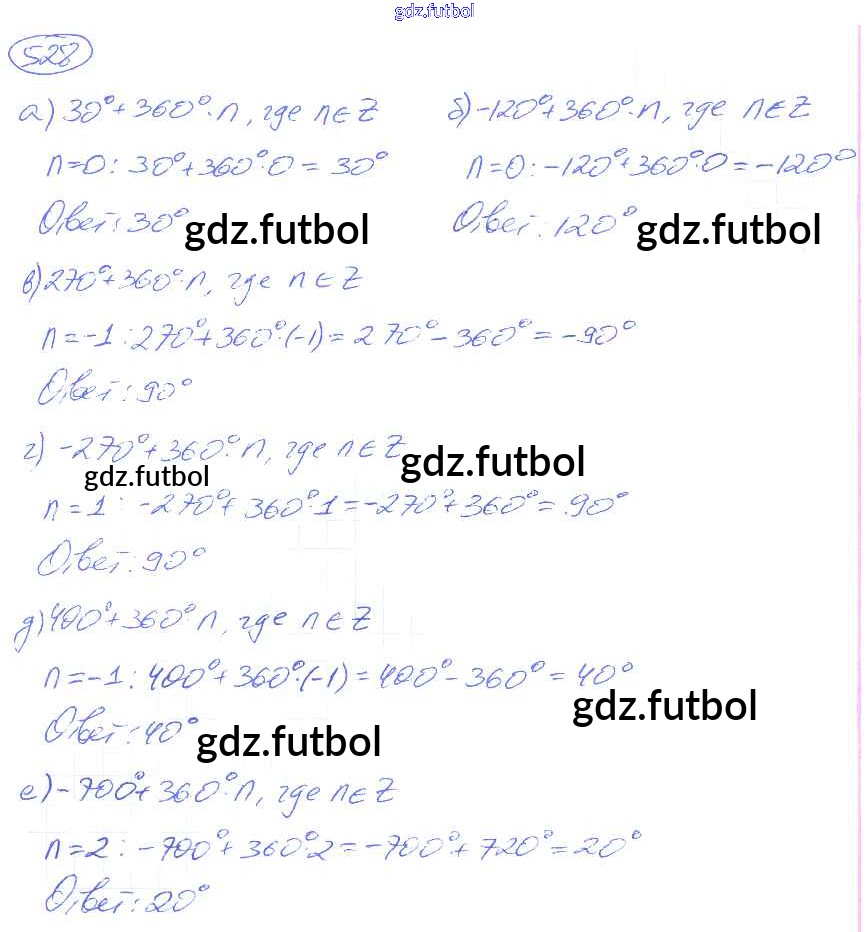 gdz.futbol
528
а) 30° + 360°·n, где n∈Z
n=0: 30°+360°·0 = 30°
Ответ: 30°
gdz.futbol
б) -120°+360°·n, где n∈Z
n=0: -120°+360°·0 = -120°
Ответ: 120°
gdz.futbol
в) 270°+360°·n, где n∈Z
n=-1: 270°+360°·(-1) = 270°-360° = -90°
Ответ: 90°
г) -270°+360°·n, где n∈Z
gdz.futbol
gdz.futbol
n=1: -270°+360°·1 = -270°+360° = 90°
Ответ: 90°
д) 400°+360°·n, где n∈Z
n=-1: 400°+360°·(-1) = 400°-360° = 40°
gdz.futbol
Ответ: 40°
gdz.futbol
е) -700°+360°·n, где n∈Z
n=2: -700°+360°·2 = -700°+720° = 20°
Ответ: 20°